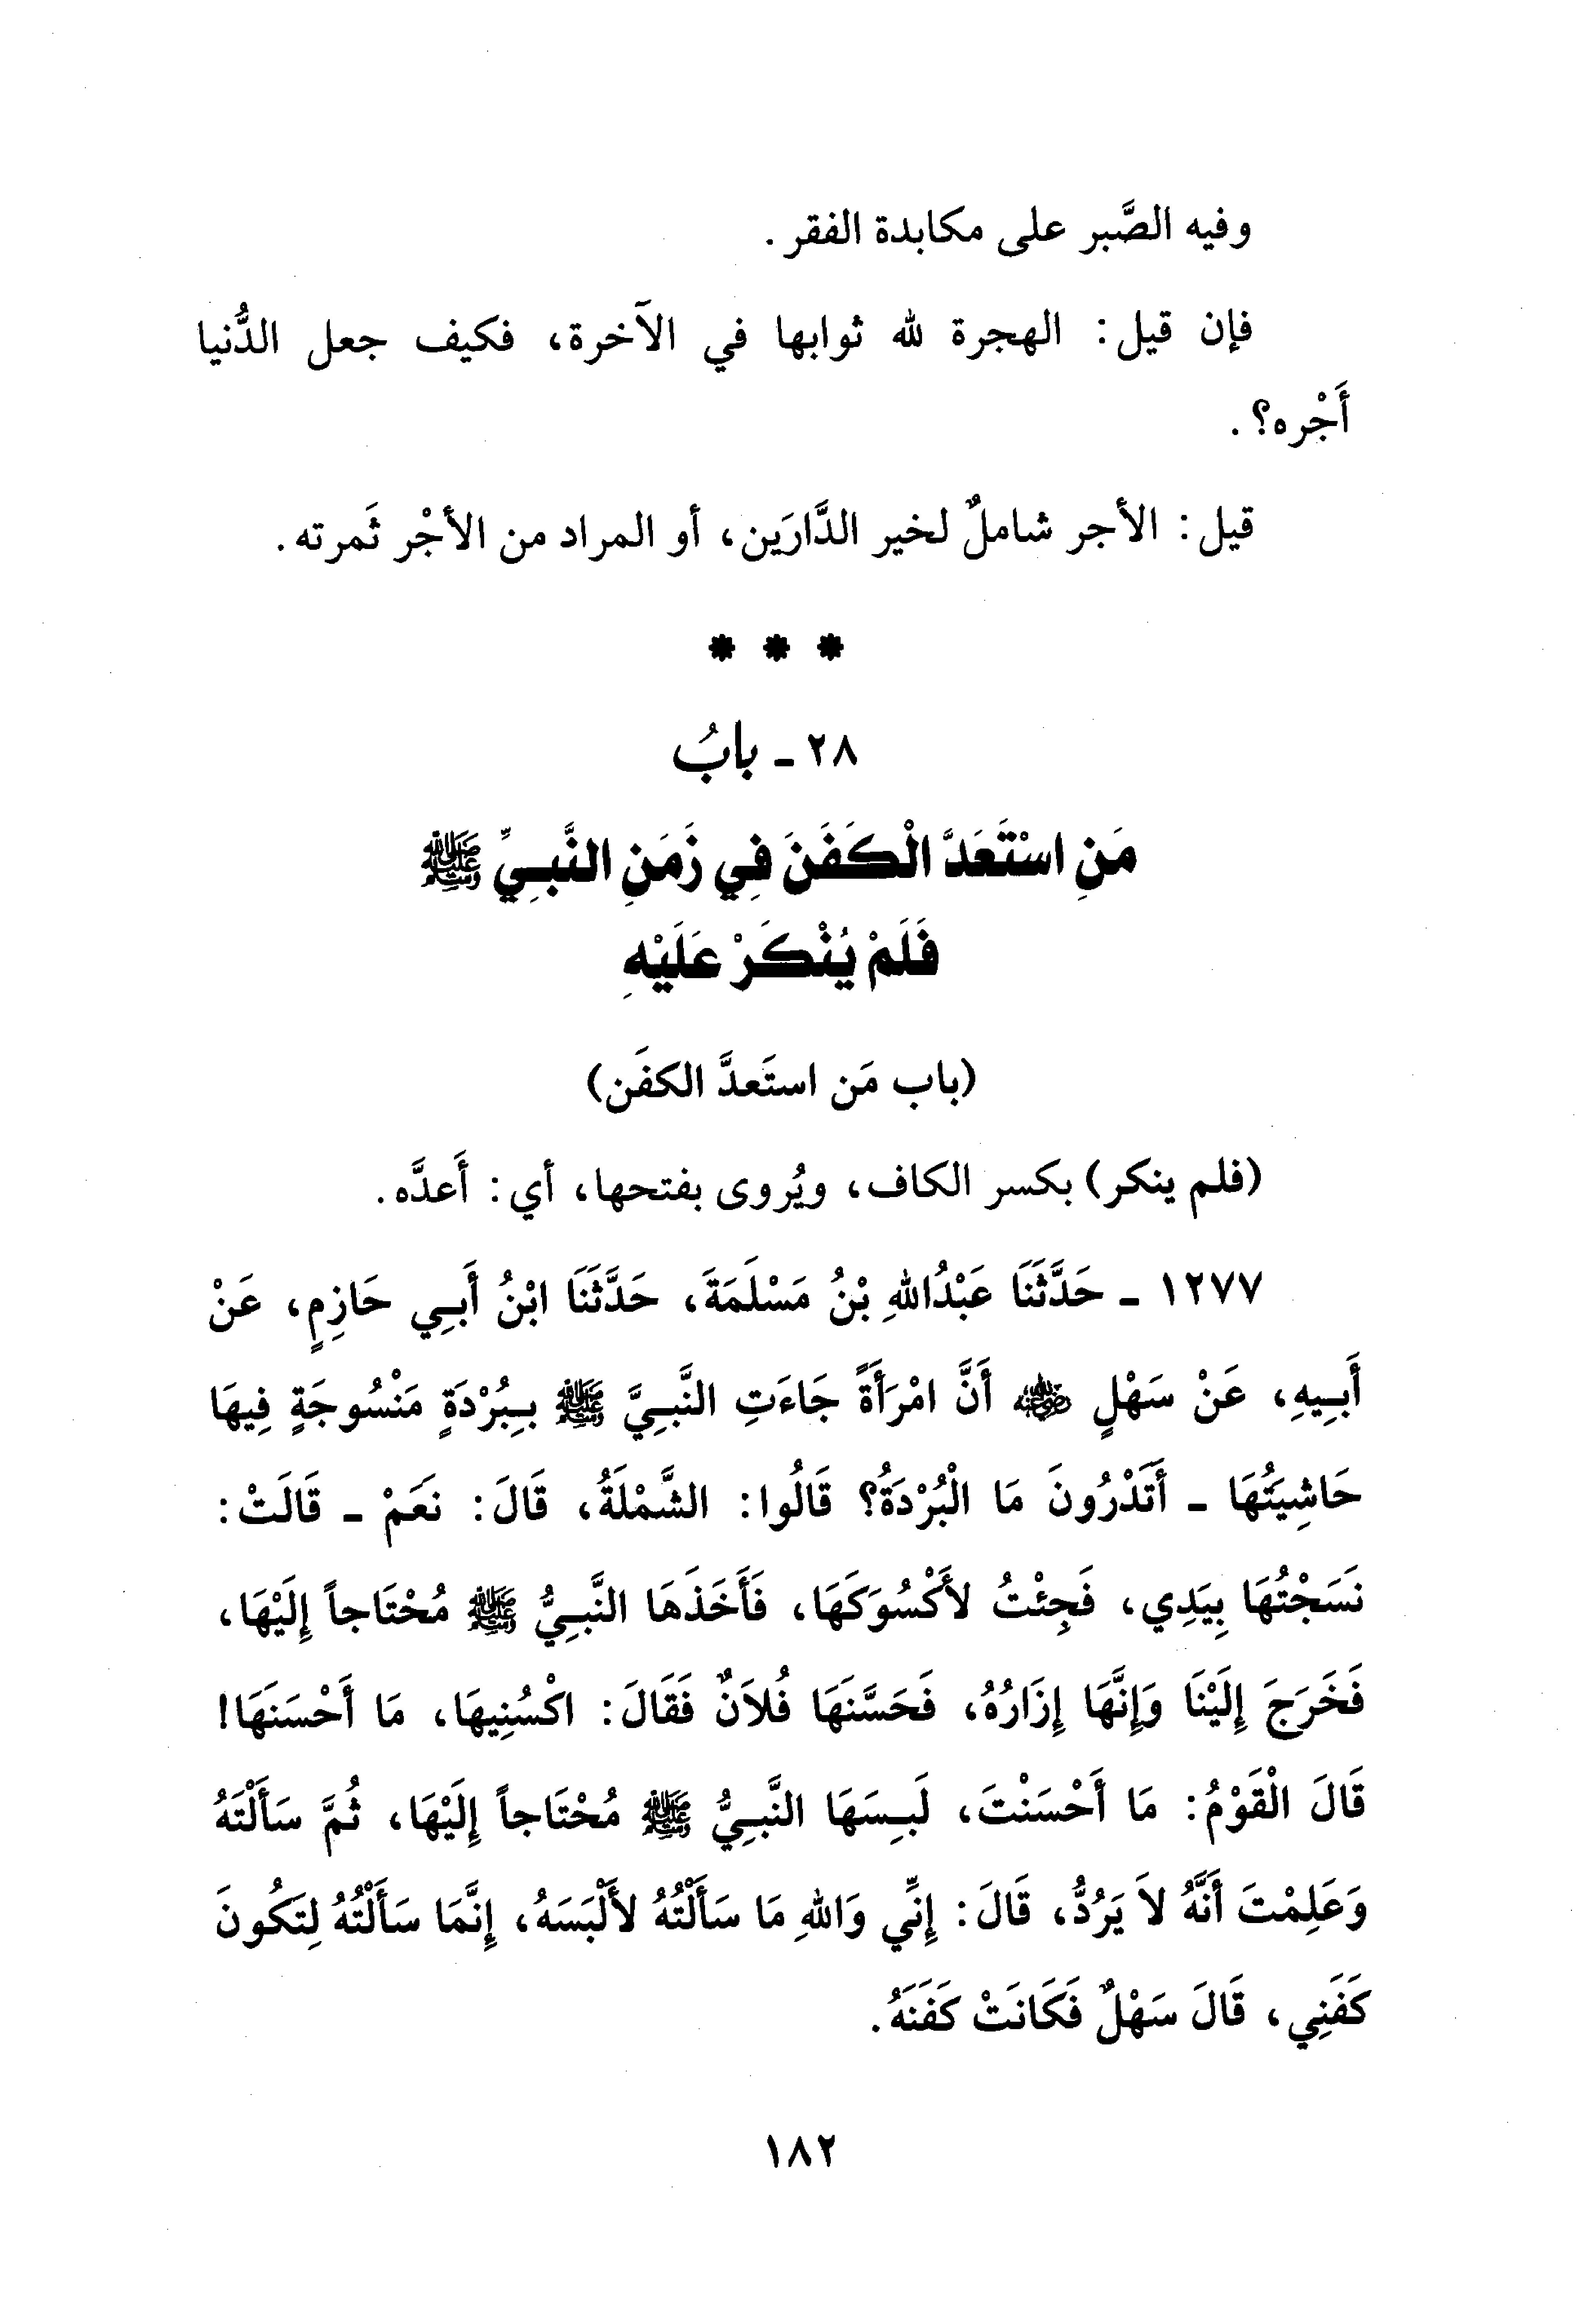 وفيه الصَّبر على مكابدة الفقر.
فإن قيل: الهجرة لله ثوابها في الآخرة، فكيف جعل الدُّنيا
أَجْره؟.
قيل: الأجر شاملٌ لخير الدَّارَين، أو المراد من الأجْر ثَمرته.
* * *
٢٨ - بابُ
مَنِ اسْتَعَدَّ الْكَفَنَ فِي زَمَنِ النَّبِيِّ ﷺ
فَلَمْ يُنْكَرْ عَلَيْهِ
(باب مَن استَعدَّ الكفَن)
(فلم ينكر) بكسر الكاف، ويُروى بفتحها، أي: أَعدَّه.
١٢٧٧ - حَدَّثَنَا عَبْدُاللهِ بْنُ مَسْلَمَةَ، حَدَّثَنَا ابْنُ أَبِي حَازِمٍ، عَنْ
أَبِيهِ، عَنْ سَهْلٍ ﵁ أَنَّ امْرَأَةً جَاءَتِ النَّبِيَّ ﷺ بِبُرْدَةٍ مَنْسُوجَةٍ فِيهَا
حَاشِيَتُهَا - أَتَدْرُونَ مَا الْبُرْدَةُ؟ قَالُوا: الشَّمْلَةُ، قَالَ: نَعَمْ - قَالَتْ:
نَسَجْتُهَا بِيَدِي، فَجِئْتُ لأَكْسُوَكَهَا، فَأَخَذَهَا النَّبِيُّ ﷺ مُحْتَاجاً إِلَيْهَا،
فَخَرَجَ إِلَيْنَا وَإِنَّهَا إِزَارُهُ، فَحَسَّنَهَا فُلاَنٌ فَقَالَ: اكْسُنِيهَا، مَا أَحْسَنَهَا!
قَالَ الْقَوْمُ: مَا أَحْسَنْتَ، لَبِسَهَا النَّبِيُّ ﷺ مُحْتَاجاً إِلَيْهَا، ثُمَّ سَأَلْتَهُ
وَعَلِمْتَ أَنَّهُ لاَ يَرُدُّ، قَالَ: إِنِّي وَاللهِ مَا سَأَلْتُهُ لأَلْبَسَهُ، إِنَّمَا سَأَلْتُهُ لِتَكُونَ
كَفَنِي، قَالَ سَهْلٌ فَكَانَتْ كَفَنَهُ.
١٨٢